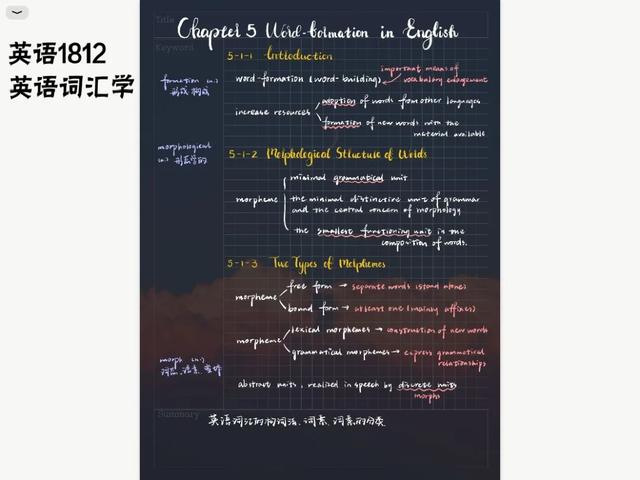 英语1812
英语词汇学
Title
Chapter 5 Word-formation in English
Keyword
5-1-1 Introduction
formation (n.)
形成 构成
word-formation (word-building)
important means of
vocabulary enlargement
increase resources
adoption of words from other languages
formation of new words with the
material available
morphological
形态学的
5-1-2 Morphological Structure of Words
morpheme
minimal grammatical unit
the minimal distinctive unit of grammar
and the central concern of morphology
the smallest functioning unit in the
composition of words.
5-1-3 Two Types of Morphemes
morpheme
free form → separate words (stand alone)
bound form → at least one (mainly affixes)
morpheme
lexical morphemes → construction of new words
grammatical morphemes → express grammatical
relationships
morph (n.)
abstract units, realized in speech by discrete units
morphs
Summary
英语词汇的构词法、词素、词素的分类